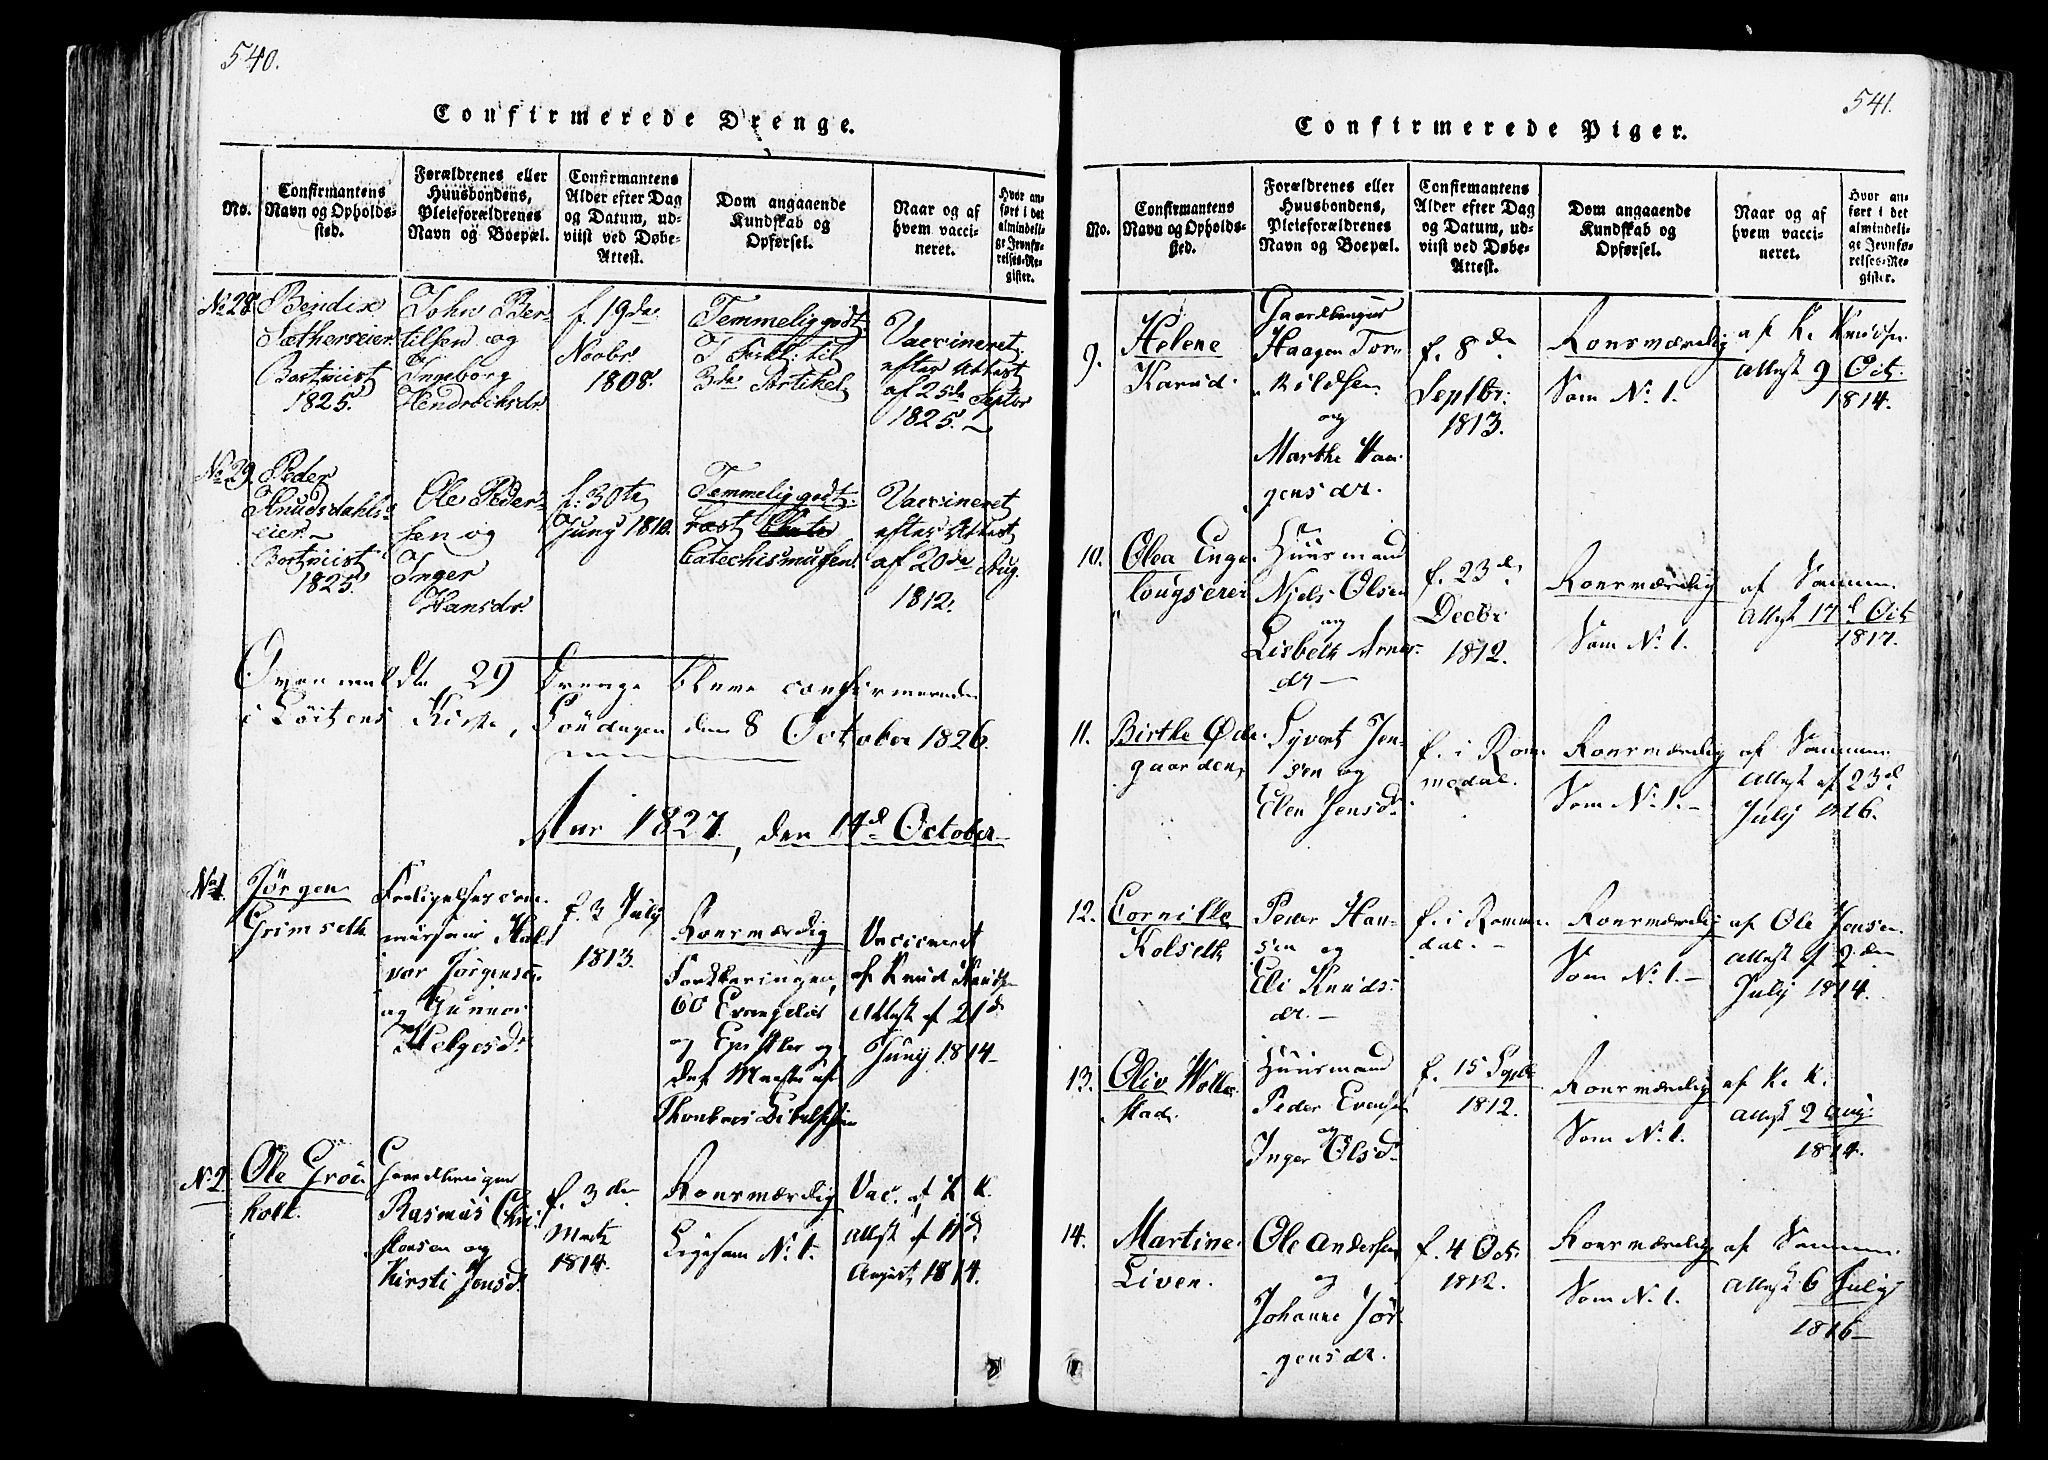 540.
Confirmerede Drenge.
No.
Confirmantens Navn og Opholdssted.
Forældrenes eller Huusbondens, Pleieforældrenes Navn og Boepæl.
Confirmantens Alder efter Dag og Datum, udviist ved Døbe-Attest.
Dom angaaende Kundskab og Opførsel.
Naar og af hvem vaccineret.
Hvor anført i det almindelige Jevnførelses-Register.
No 28
Bendix
Sætherseier
Bortviist
1825.
John Ber-
tilsen og
Ingeborg
Hendrichsdr.
f. 19de
Novbr
1808.
Temmelig godt
I Forkl: til
3de Artikel
Vaccineret
efter Attest
af 25de Septbr
1825.
No 29.
Peder
Knudsdahls-
eier
Bortviist
1825.
Ole Peder-
sen og
Inger
Hansdr.
f. 30te
Juny 1810.
Temmelig godt.
Læst
Catechismussen
Vaccineret
efter Attest
af 20de Aug.
1812.
Ovenmeldte 29 Drenge bleve confirmerede
i Löitens Kirke, Söndagen den 8 October 1826.
Aar 1827, den 14d October
No 1
Jörgen
Grimseth
mussair Hal-
vor Jörgensen
og Gunnor
Helgesd.
f. 3 July
1813.
Konsmærdig
Forklaringen,
60 Evangelier
og Epistler og
det Meeste af
Vaccineret
af Knud Knudsen
Attest af 21d
Juny 1814
No 2
Ole Gröt-
holt.
Gaardbruger
Rasmus Chri-
stensen og
Kirsti Jonsd.
f. 3den
Marts
1814.
Konsmærdig
Ligesom No 1.
Vac. af K. K.
Attest af 11d
August 1814.
541.
Confirmerede Piger.
No.
Confirmantens Navn og Opholdssted.
Forældrenes eller Huusbondens, Pleieforældrenes Navn og Boepæl.
Confirmantens Alder efter Dag og Datum, udviist ved Døbe-Attest.
Dom angaaende Kundskab og Opførsel.
Naar og af hvem vaccineret.
Hvor anført i det almindelige Jevnførelses-Register.
9.
Helene
Karud.
Gaardbruger
Haagen Tor-
kildsen
og
Marthe Haa-
gensdr.
f. 8de
Septbr.
1813.
Konsmærdig
Som No 1.
af K. Knudsen
Attest 9 Oct.
1814.
10.
Olea Enge-
lougseier
Huusmand
Niels Olsen
og
Lisbeth Arnes-
dr
f. 23d
Decbr
1812.
Konsmærdig
Som No 1.
af Samme
Attest 17d Oct
1817.
11.
Birthe Øde-
gaarden,
Syvert Jen-
sen og
Elen Jensdr.
f. i Rom-
medal.
Konsmærdig
Som No 1.
af Samme
Attest af 23d
July 1816.
12.
Cornille
Kolseth
Peder Han-
sen og
Eli Knuds-
dr.
f. i Romme-
dal.
Konsmærdig
Som No 1.
af Ole Jensen
Attest af 2den
July 1814.
13.
Oliv Wolle-
stad.
Huusmand
Peder Evensen
og
Inger Olsd.
f. 15 Septb
1812.
Konsmærdig
Som No 1.
af K. K.
Attest 2 Aug.
1814.
14.
Martine
Liven.
Ole Andersen
og
Johanne Jör-
gensdr.
f. 4 Oct.
1812.
Konsmærdig
Som No 1.
af Samme
Attest 6 July
1816